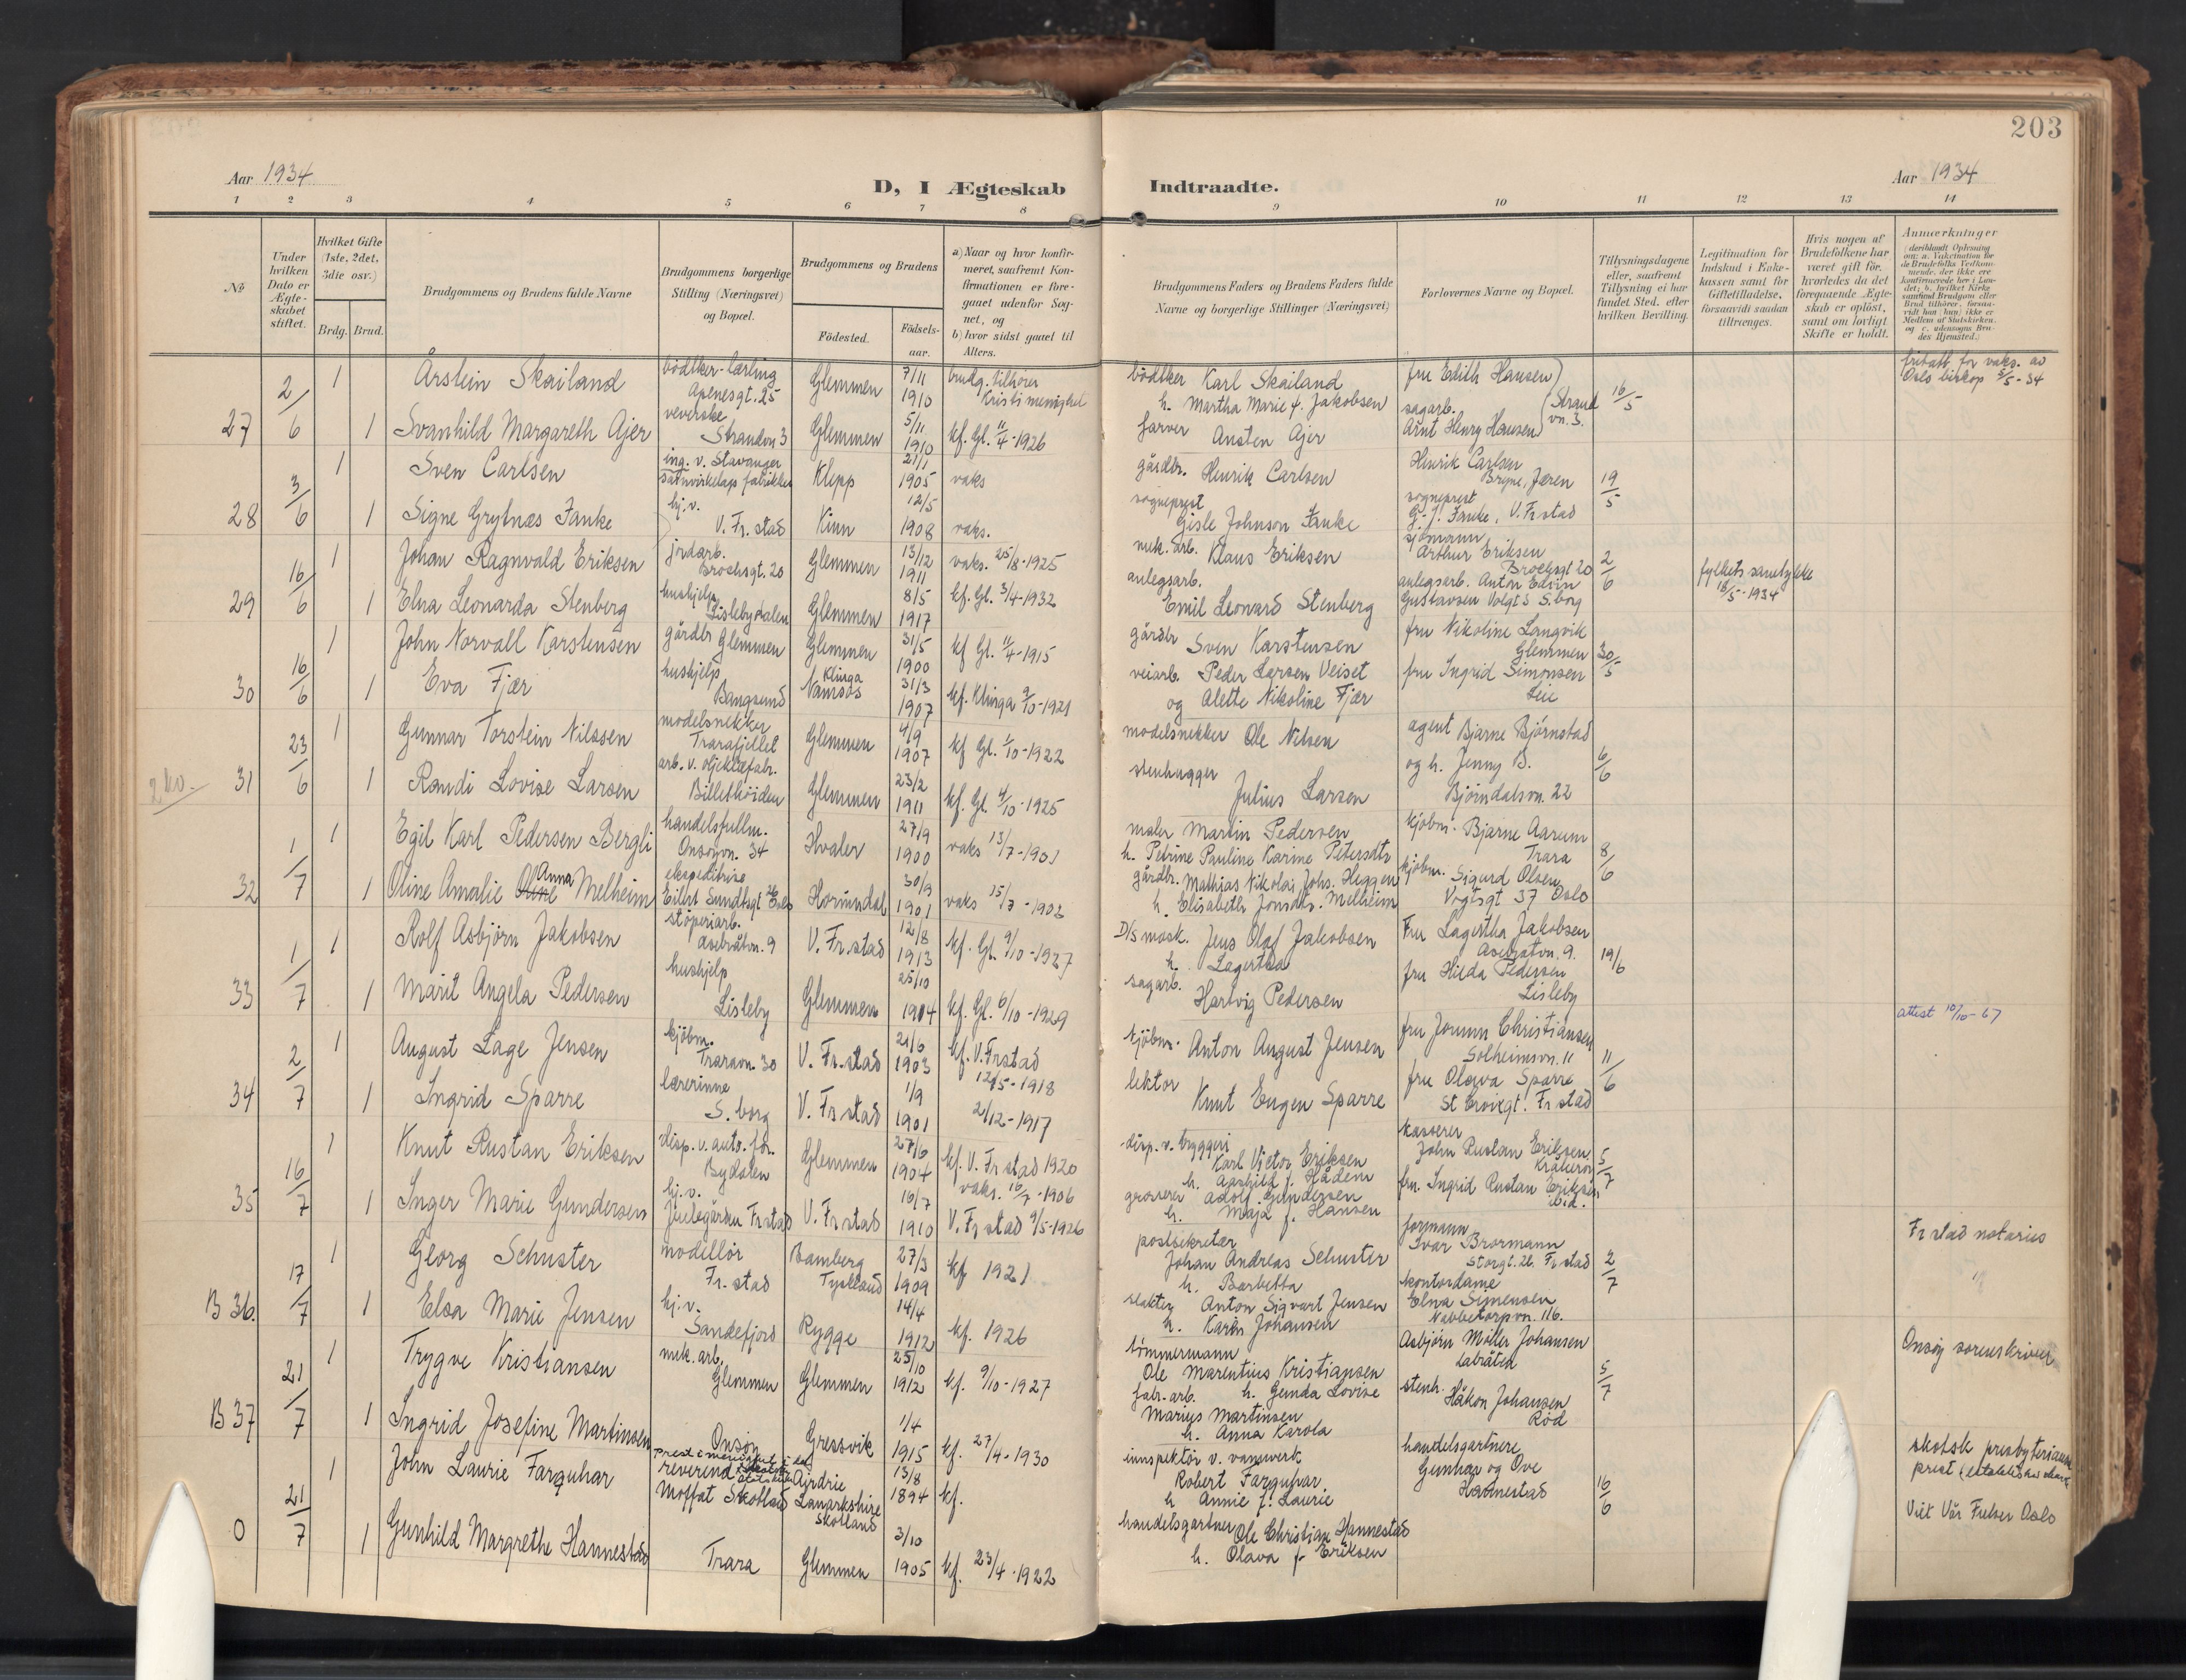 203
Aar 1934
D, I Ægteskab Indtraadte.
Aar 1934
1 2 3 4 5 6 7 8 9 10 11 12 13 14
No
Under hvilken Dato er Ægteskabet stiftet.
Hvilket Gifte (1ste, 2det, 3die osv.)
Brdg. Brud.
Brudgommens og Brudens fulde Navne
Brudgommens borgerlige Stilling (Næringsvei) og Bopæl.
Brudgommens og Brudens
Födested.
Födsels-aar.
a) Naar og hvor konfirmeret, saafremt Konfirmationen er foregaaet udenfor Sognet, og
b) hvor sidst gaaet til Alters.
Brudgommens Faders og Brudens Faders fulde Navne og borgerlige Stillinger (Næringsvei)
Forlovernes Navne og Bopæl.
Tillysningsdagene eller, saafremt Tillysning ei har fundet Sted, efter hvilken Bevilling.
Legitimation for Indskud i Enkekassen samt for Giftetilladelse, forsaavidt saadan tiltrænges.
Hvis nogen af Brudefolkene har været gift för, hvorledes da det foregaaende Ægteskab er oplöst, samt om lovligt Skifte er holdt.
Anmærkninger
27 2/6
1 Årstein Skailand bödtker-lærling Apenesgt. 25 Glemmen 7/11 1910 brudg. tilhører Kristi menighet
bödtker Karl Skailand
h. Martha Marie f. Jakobsen
fru Edith Hansen
16/5
fritatt for vaks. av
Oslo biskop 5/5-34
1 Svanhild Margareth Ajer veverske Strandvn 3 Glemmen 5/11 1910 kf. Gl. 11/4-1926
farver Ansten Ajer
sagarb.
Arnt Henry Hansen
Strand vn. 3.
28 3/6
1 Sven Carlsen ing. v. Stavanger fabrikker Klepp 21/1 1905 vaks
gårdbr. Henrik Carlsen
Henrik Carlsen
Bryne, Jæren
19/5
1 Signe Grytnæs Fanke hj.v. V. Fr. stad Kinn 12/5 1908 vaks.
sogneprest
Gisle Johnson Fanke
sogneprest
G. J. Fanke, V. Frstad
29 16/6
1 Johan Ragnvald Eriksen jordarb. Brochsgt. 20 Glemmen 13/12 1911 vaks. 25/8-1925
muk. arb. Klaus Eriksen
sjömann
Arthur Eriksen
Brochsgt 20
2/6
1 Elna Leonarda Stenberg hushjelp Lislebydalen Glemmen 8/5 1917 kf. Gl. 3/4-1932
anlegsarb.
Emil Leonard Stenberg
anlegsarb. Anton Edvin
Gustavsen S. borg
fylkets samtykke
18/5-1934
30 16/6
1 John Norvall Karstensen gårdbr Glemmen Glemmen 31/5 1900 kf Gl. 11/4-1915
gårdbr Sven Karstensen
fru Nikoline Langvik
Glemmen
30/5
1 Eva Fjær hushjelp Bangsund Klinga Namsos 31/3 1907 kf. Klinga 2/10-1921
veiarb. Peder Larsen Veiset
og Alette Nikoline Fjær
fru Ingrid Simonsen
Leie
31 23/6
1 Gunnar Torstein Nilssen modelsnekker Trarafjellet Glemmen 4/9 1907 kf Gl. 1/10-1922
modelsnekker Ole Nilsen
agent Bjarne Bjørnstad
6/6
1 Randi Lovise Larsen arb. v. oljeklæfabr. Billethöiden Glemmen 23/2 1911 kf. Gl. 4/10-1925
stenhugger
Julius Larsen
og h. Jenny B.
Bjørndalsvn. 22
32 1/7
1 Egil Karl Pedersen Bergli handelsfullm. Onsøyvn. 34 Hvaler 27/9 1900 vaks 13/7-1901
maler Martin Pedersen
h. Petrine Pauline Karine Petersdtr
kjöbm. Bjarne Aarum
Trara
8/6
1 Oline Amalie Anna Melheim ekspeditrise Eilert Sundtsgt Oslo Hornindal 30/9 1901 vaks 15/7-1903
gårdbr. Mathias Nikolai Johs. Heggen
h. Elisabeth Jonsdtr. Melheim
kjöbm. Sigurd Olsen
Vogtsgt 37 Oslo
33 1/7
1 Rolf Asbjørn Jakobsen støperiarb. Aasebråtvn. 9 V. Fr.stad 12/8 1913 kf. Gl. 9/10-1927
D/S mask. Jens Olaf Jakobsen
h. Lagertha
Fru Lagertha Jakobsen
Asebråtvn. 9.
19/6
1 Marit Angela Pedersen hushjelp Lisleby Glemmen 25/10 1914 kf. Gl. 6/10-1929
sagarb.
Hartvig Pedersen
fru Hilda Pedersen
Lisleby
attest 10/10-67
34 2/7
1 August Lage Jensen kjöbm. Traravn. 30 V. Fr. stad 21/6 1903 kf. V. Frstad 12/5-1918
kjöbm. Anton August Jensen
fru Jorunn Christiansen
Solheimsvn. 11
11/6
1 Ingrid Sparre lærerinne S. borg V. Fr stad 1/9 1901 2/12-1917
lektor
Knut Eugen Sparre
fru Olava Sparre
St Croixgt. Fr stad
35 16/7
1 Knut Rustan Eriksen disp. v. auto. for. Bydalen Glemmen 27/6 1904 kf. V. Fr stad 1920
disp. v. bryggeri
Karl Victor Eriksen
h. Aashild f. Hådem
kasserer
John Rustan Eriksen
5/7
1 Inger Marie Gundersen hj.v. Frstad V. Fr. stad 16/7 1910 vaks. 16/7-1906
V. Fr stad 9/5-1926
grosserer Adolf Gundersen
h. Maja f. Hansen
fru. Ingrid Rustan Eriksen
ibid.
B 36. 17/7
1 Georg Schuster modellør Fr. stad Bamberg Tyskland 27/3 1909 kf 1921
postsekretær
Johan Andreas Schuster
h. Barbetta
formann
Ivar Brormann
Storgt. 26. Fr stad
2/7
Fr stad notarius
1 Elsa Marie Jensen hj.v. Sandefjord Rygge 14/4 1912 kf. 1926
slakter Anton Sigvart Jensen
h. Karen Johansen
kontordame
Elna Simensen
Nabbetorpvn. 116.
B 37 21/7
1 Trygve Kristiansen muk. arb. Glemmen Glemmen 25/10 1912 kf. 9/10-1927
tömmermann
Ole Marentius Kristiansen
h. Gunda Lovise
Asbjørn Møller Johansen
Labråten
5/7
Onsøy sorenskriver
1 Ingrid Josefine Martinsen Onsøy Gressvik 1/4 1915 kf. 27/4-1930
fabr. arb.
Marius Martinsen
h. Anna Karola
stenh. Håkon Johansen
Rød
0 21/7
1 John Laurie Farquhar reverend Moffat Skotland Airdrie Lanarkshire Skotland 13/8 1894 kf.
innspektør v. vannverk
Robert Farquhar
h Annie f. Laurie
handelsgartnere
Gunhar og Ove
Hannestad
16/6
skotsk presbyteriansk
prest
1 Gunhild Margrethe Hannestad Trara Glemmen 3/10 1905 kf. 23/4-1922
handelsgartner Ole Christian Hannestad
h. Olava f. Eriksen
Viet Vår Frelser Oslo